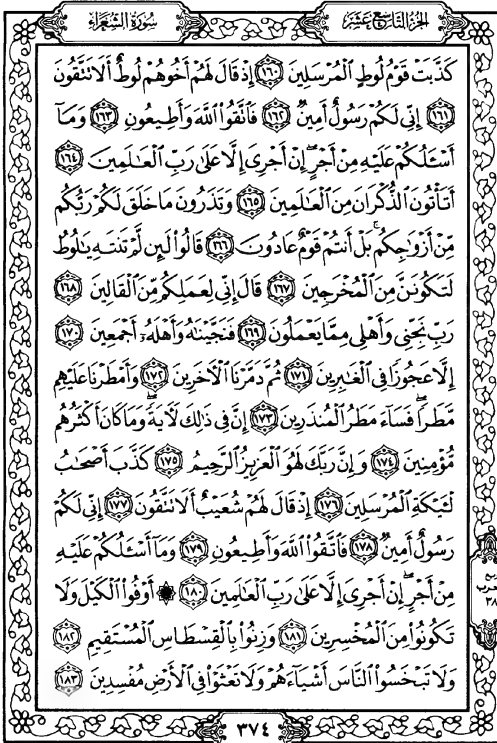 الجزء التاسع عشر سورة الشعراء
كَذَّبَتْ قَوْمُ لُوطٍ ٱلْمُرْسَلِينَ ١٦٠ إِذْ قَالَ لَهُمْ أَخُوهُمْ لُوطٌ أَلَا تَتَّقُونَ
١٦١ إِنِّى لَكُمْ رَسُولٌ أَمِينٌ ١٦٢ فَٱتَّقُوا۟ ٱللَّهَ وَأَطِيعُونِ ١٦٣ وَمَآ
أَسْـَٔلُكُمْ عَلَيْهِ مِنْ أَجْرٍ ۖ إِنْ أَجْرِىَ إِلَّا عَلَىٰ رَبِّ ٱلْعَـٰلَمِينَ ١٦٤
أَتَأْتُونَ ٱلذُّكْرَانَ مِنَ ٱلْعَـٰلَمِينَ ١٦٥ وَتَذَرُونَ مَا خَلَقَ لَكُمْ رَبُّكُم
مِّنْ أَزْوَٰجِكُم ۚ بَلْ أَنتُمْ قَوْمٌ عَادُونَ ١٦٦ قَالُوا۟ لَئِن لَّمْ تَنتَهِ يَـٰلُوطُ
لَتَكُونَنَّ مِنَ ٱلْمُخْرَجِينَ ١٦٧ قَالَ إِنِّى لِعَمَلِكُم مِّنَ ٱلْقَالِينَ ١٦٨
رَبِّ نَجِّنِى وَأَهْلِى مِمَّا يَعْمَلُونَ ١٦٩ فَنَجَّيْنَـٰهُ وَأَهْلَهُۥٓ أَجْمَعِينَ ١٧٠
إِلَّا عَجُوزًا فِى ٱلْغَـٰبِرِينَ ١٧١ ثُمَّ دَمَّرْنَا ٱلْـَٔاخَرِينَ ١٧٢ وَأَمْطَرْنَا عَلَيْهِم
مَّطَرًا ۖ فَسَآءَ مَطَرُ ٱلْمُنذَرِينَ ١٧٣ إِنَّ فِى ذَٰلِكَ لَـَٔايَةً ۖ وَمَا كَانَ أَكْثَرُهُم
مُّؤْمِنِينَ ١٧٤ وَإِنَّ رَبَّكَ لَهُوَ ٱلْعَزِيزُ ٱلرَّحِيمُ ١٧٥ كَذَّبَ أَصْحَـٰبُ
لْـَٔيْكَةِ ٱلْمُرْسَلِينَ ١٧٦ إِذْ قَالَ لَهُمْ شُعَيْبٌ أَلَا تَتَّقُونَ ١٧٧ إِنِّى لَكُمْ
رَسُولٌ أَمِينٌ ١٧٨ فَٱتَّقُوا۟ ٱللَّهَ وَأَطِيعُونِ ١٧٩ وَمَآ أَسْـَٔلُكُمْ عَلَيْهِ
مِنْ أَجْرٍ ۖ إِنْ أَجْرِىَ إِلَّا عَلَىٰ رَبِّ ٱلْعَـٰلَمِينَ ١٨٠ ۞ أَوْفُوا۟ ٱلْكَيْلَ وَلَا
تَكُونُوا۟ مِنَ ٱلْمُخْسِرِينَ ١٨١ وَزِنُوا۟ بِٱلْقِسْطَاسِ ٱلْمُسْتَقِيمِ ١٨٢
وَلَا تَبْخَسُوا۟ ٱلنَّاسَ أَشْيَآءَهُمْ وَلَا تَعْثَوْا۟ فِى ٱلْأَرْضِ مُفْسِدِينَ ١٨٣
٣٧٤